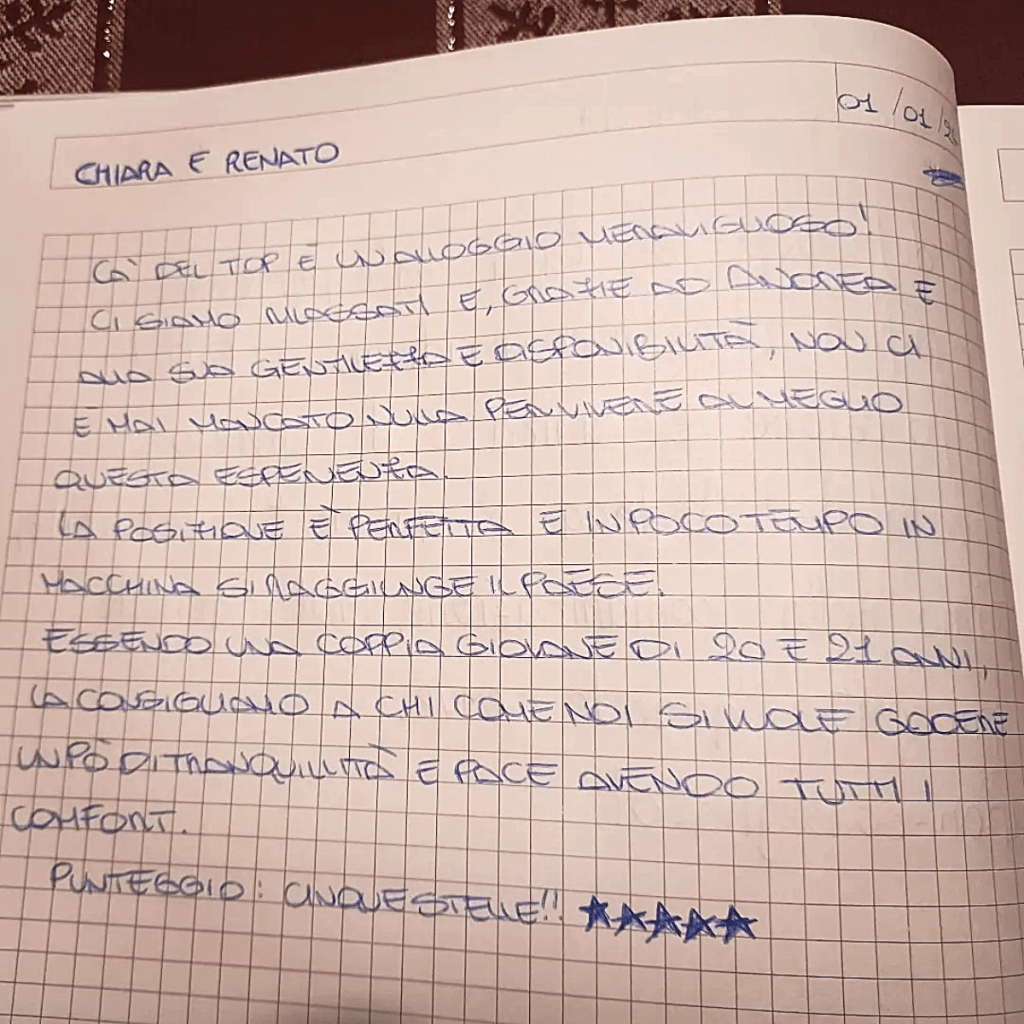 01/01/2
CHIARA E RENATO
CA' DEL TOP È UN ALLOGGIO MERAVIGLIOSO!
CI SIAMO RILASSATI E, GRAZIE AD ANDREA E
ALLA SUA GENTILEZZA E DISPONIBILITÀ, NON CI
E MAI MANCATO NULLA PER VIVERE AL MEGLIO
QUESTA ESPERIENZA.
LA POSIZIONE È PERFETTA E IN POCO TEMPO IN
MACCHINA SI RAGGIUNGE IL PAESE.
ESSENDO UNA COPPIA GIOVANE DI 20 E 21 ANNI,
LA CONSIGLIAMO A CHI COME NOI SI VUOLE GODERE
UN PÒ DI TRANQUILLITÀ E PACE AVENDO TUTTI I
COMFORT.
PUNTEGGIO: CINQUE STELLE!! ★★★★★